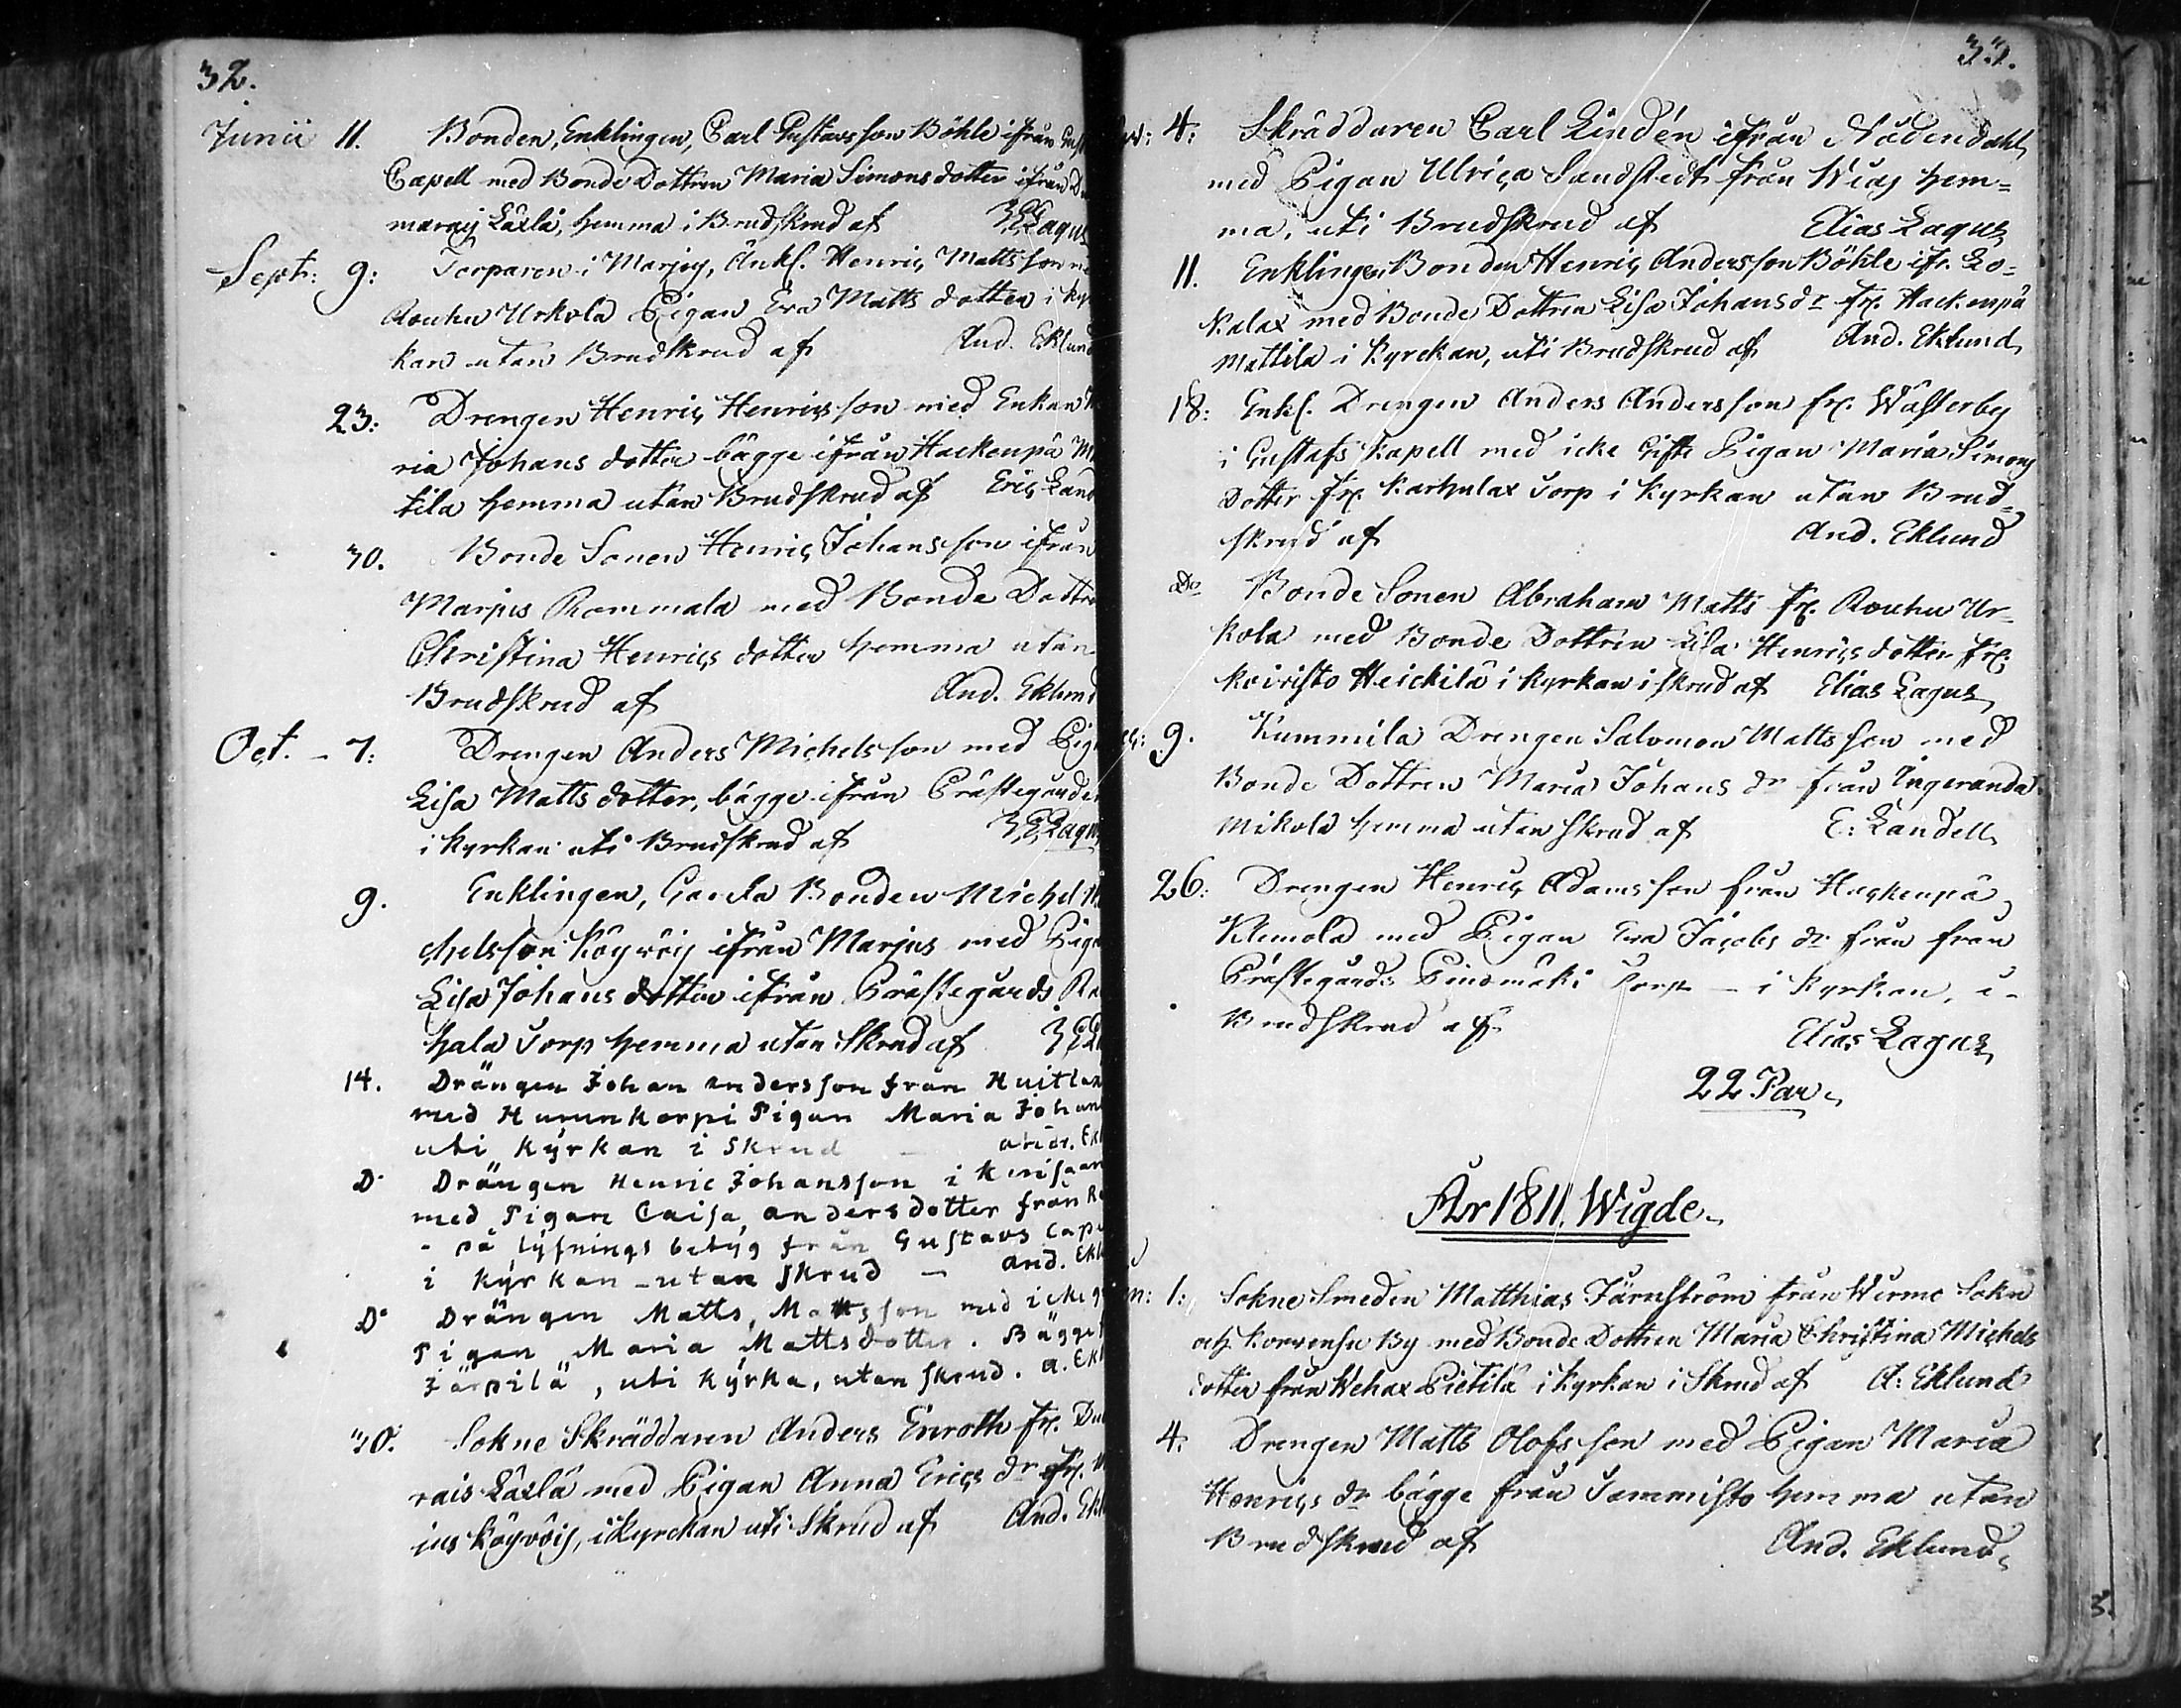 32.
Junii 11. Bonden, Enklingen, Carl Gustavsson Böhle ifrån
Capell med Bonde Dottren Maria Simonsdotter ifrån
marais Laxla, hemma i Brudskrud af Lagus
Septr: 9: Torparen i Marjus, Änkl. Henric Mattsson
Rouhu Urkola Pigan Eva Matts dotter i
kan utan Brudskrud af And. Eklund
23: Drengen Henric Henricsson med Enkan
ria Johans dotter bägge ifrån Hackenpä
tila hemma utan Brudskrud af Eric Land
30. Bonde Sonen Henric Johansson ifrån
Marjus Rommala med Bonde Dottre
Christina Henrics dotter hemma utan
Brudskrud af And. Eklund
Oct. - 7: Drengen Anders Michelsson med Pig
Lisa Matts dotter, bägge ifrån Prästegården
i Kyrkan uti Brudskrud af Lagus
9. Enklingen, Gamla Bonden Michel
chelsson Köywöis ifrån Marjus med Piga
Lisa Johans dotter ifrån Prästegårds Ra
hala Torp hemma utan Skrud af
14. Drängen Johan andersson från Huitla
med Hurunkorpi Pigan Maria Johan
uti Kyrkan i Skrud - andr. Ek
D: Drängen Henric Johansson i
med Pigan Caisa andersdotter från
- på lysnings betyg från Gustavs Cap
i Kyrkan - utan Skrud - and. Ekl
D: Drängen Matts, Mattsson med icke g
Pigan Maria Mattsdotter. Bägge
Järpilä, uti Kyrka, utan skrud. a. Ek
30. Sokne Skräddaren Anders Enroth fr.
rais Laxlä med Pigan Anna Erics dr ifr.
jus Köywöis, i Kyrckan uti Skrud af And. Ekl
33.
4: Skräddaren Carl Lindén ifrån Nådendahl
med Pigan Ulrica Sandstedt från Wias hem=
ma, uti Brudskrud af Elias Lagus
11. Enklingen Bonden Henric Andersson Böhle ifr. Lo=
kalax med Bonde Dottren Lisa Johansdr fr. Hackenpä
Mattila i Kyrckan, uti Brudskrud af And. Eklund
18: Enkl. Drengen Anders Andersson fr. Wästerby
i Gustafs Kapell med icke Gifte Pigan Maria Simons
Dotter fr. Karhulax Torp i Kyrkan utan Brud=
skrud af And. Eklund
Do Bonde Sonen Abraham Matts fr. Rouhu Ur=
kola med Bonde Dottren Lisa Henrics dotter fr.
Koiristo Heickilä i Kyrkan i skrud af Elias Lagus
9. Kummila Drengen Salomon Mattsson med
Bonde Dottren Maria Johans dr från Ingeranda
Mikola hemma utan skrud af E: Landell
26: Drengen Henric Adamsson från Hackenpä
Klemola med Pigan Eva Jacobs dr från från
Prästegårds Pinomäki Torp - i Kyrkan, i-
Brudskrud af Elias Lagus
22 Par.
År 1811. Wigde.
1: Sokne Smeden Matthias Järnström från Wirmo Sokn
och Korvensu By med Bonde Dottren Maria Christina Michels
dotter från Wehax Pietilä i Kyrkan i Skrud af A: Eklund
4. Drengen Matts Olofsson med Pigan Maria
Henrics dr bägge från Tammisto hemma utan
Brudskrud af And. Eklund